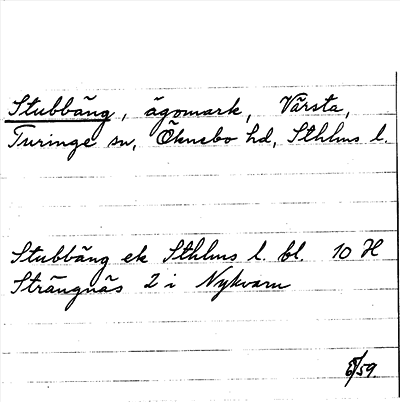 Stubbäng, ägomark, Vårsta,
Turinge sn, Öknebo hd, Sthlms l.
Stubbäng ek Sthlms l. bl. 10 H
Strängnäs 2 i Nykvarn
/59